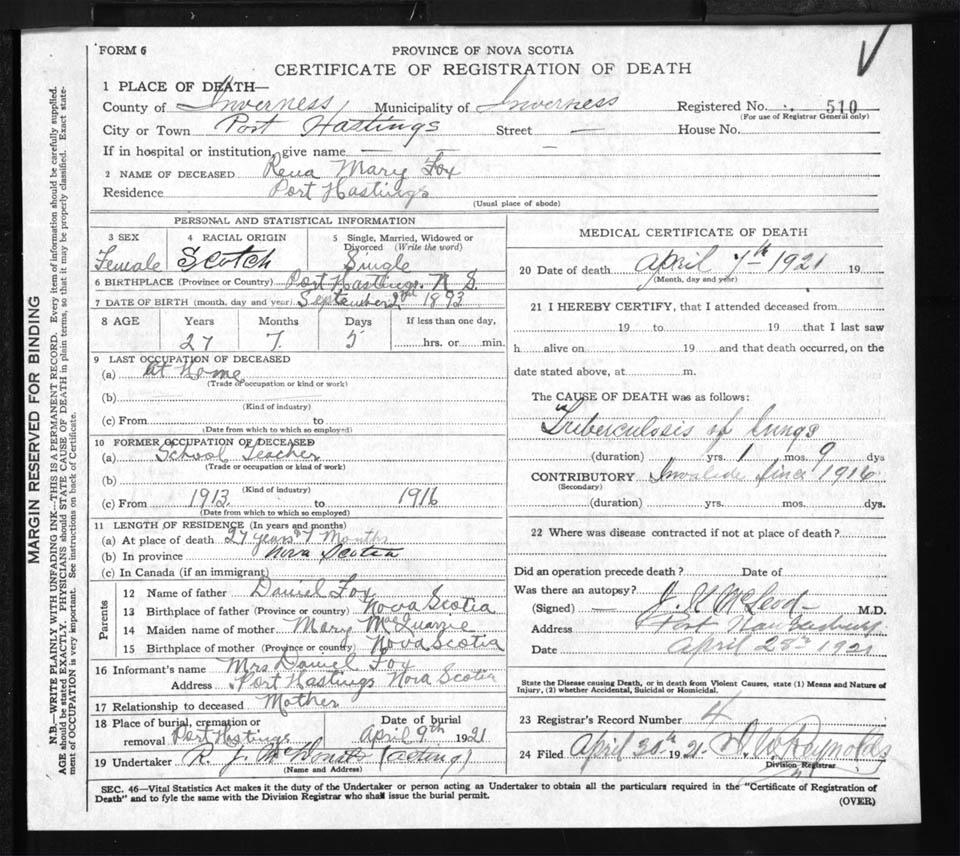 FORM 6
PROVINCE OF NOVA SCOTIA
CERTIFICATE OF REGISTRATION OF DEATH
1 PLACE OF DEATH—
County of Inverness Municipality of Inverness Registered No. 510
(For use of Registrar General only)
City or Town Port Hastings Street — House No.
If in hospital or institution, give name — — —
2 NAME OF DECEASED Rena Mary Fox
Residence Port Hastings
(Usual place of abode)
PERSONAL AND STATISTICAL INFORMATION
3 SEX 4 RACIAL ORIGIN 5 Single, Married, Widowed or Divorced (Write the word)
Female Scotch Single
6 BIRTHPLACE (Province or Country) Port Hastings. N. S.
7 DATE OF BIRTH (month, day and year) September 2nd 1893
8 AGE Years Months Days If less than one day,
27 7. 5 hrs. or min.
9 LAST OCCUPATION OF DECEASED
(a) At Home
(Trade or occupation or kind or work)
(b)
(Kind of industry)
(c) From to
(Date from which to which so employed)
10 FORMER OCCUPATION OF DECEASED
(a) School Teacher
(Trade or occupation or kind of work)
(b)
(Kind of industry)
(c) From 1913 to 1916
(Date from which to which so employed)
11 LENGTH OF RESIDENCE (In years and months)
(a) At place of death 27 years 7 Months
(b) In province Nova Scotia
(c) In Canada (if an immigrant)
Parents
12 Name of father Daniel Fox
13 Birthplace of father (Province or country) Nova Scotia
14 Maiden name of mother Mary McQuarrie
15 Birthplace of mother (Province or country) Nova Scotia
16 Informant's name Mrs Daniel Fox
Address Port Hastings Nova Scotia
17 Relationship to deceased Mother
18 Place of burial, cremation or removal Port Hastings Date of burial April 9th 1921
19 Undertaker R. J. (acting)
(Name and Address)
MEDICAL CERTIFICATE OF DEATH
20 Date of death April 7th 1921 19
(Month, day and year)
21 I HEREBY CERTIFY, that I attended deceased from
19 to 19 that I last saw
h alive on 19 and that death occurred, on the
date stated above, at m.
The CAUSE OF DEATH was as follows:
Tuberculosis of Lungs
(duration) yrs. 1 mos. 9 dys
CONTRIBUTORY Invalid since 1916
(Secondary)
(duration) yrs. mos. dys.
22 Where was disease contracted if not at place of death?
Did an operation precede death? Date of
Was there an autopsy?
(Signed) — McLeod M.D.
Address Port Hawkesbury
Date April 28th 1921
State the Disease causing Death, or in death from Violent Causes, state (1) Means and Nature of
Injury, (2) whether Accidental, Suicidal or Homicidal.
23 Registrar's Record Number 4
24 Filed April 30th 1921. Reynolds
Division Registrar
SEC. 46—Vital Statistics Act makes it the duty of the Undertaker or person acting as Undertaker to obtain all the particulars required in the "Certificate of Registration of
Death" and to fyle the same with the Division Registrar who shall issue the burial permit.
(OVER)
MARGIN RESERVED FOR BINDING
N.B.—WRITE PLAINLY WITH UNFADING INK—THIS IS A PERMANENT RECORD. Every item of information should be carefully supplied.
AGE should be stated EXACTLY. PHYSICIANS should STATE CAUSE OF DEATH in plain terms, so that it may be properly classified. Exact state-
ment of OCCUPATION is very important. See instructions on back of Certificate.